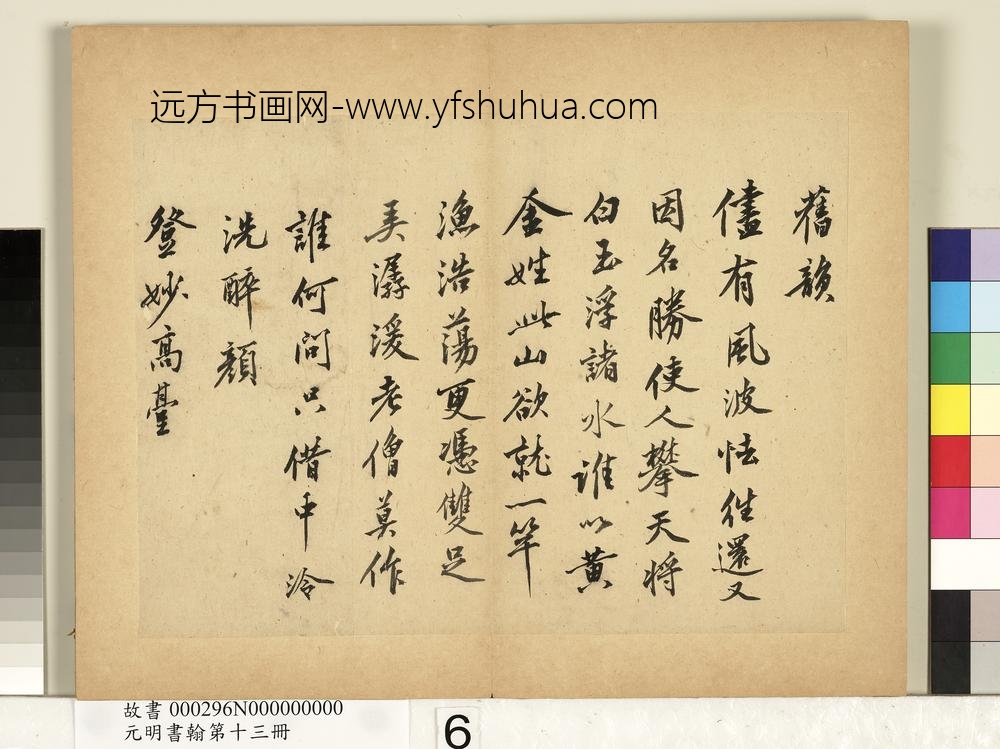 远方书画网-www.yfshuhua.com
舊韻
儘有風波怯往還又
因名勝使人攀天將
白玉浮諸水誰以黃
金姓此山欲就一竿
漁浩蕩更憑雙足
弄潺湲老僧莫作
誰何問只借中泠
洗醉顏
登妙高臺
故書 000296N000000000
元明書翰第十三冊
6